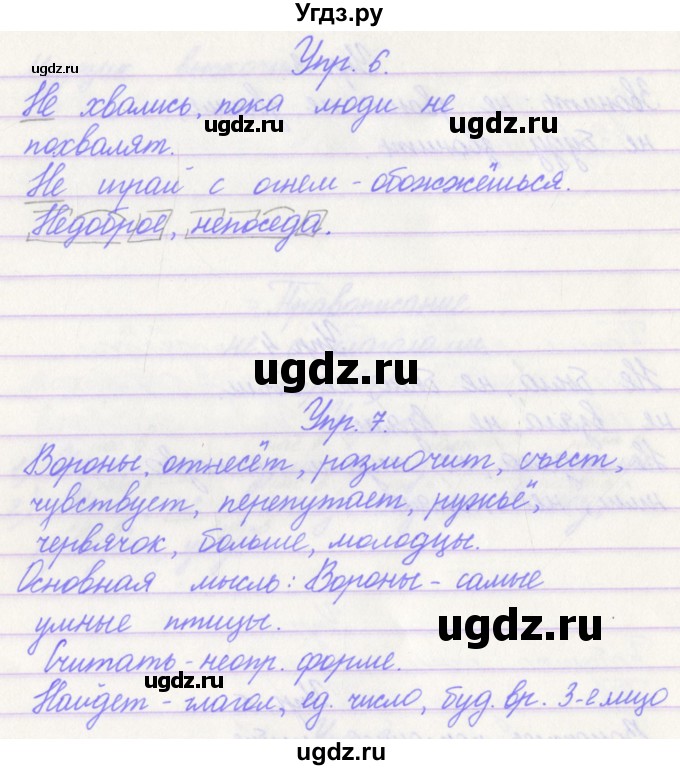 Угдз.ру
ugdz.ru
Упр. 6.
Не хвались, пока люди не
ugdz.ru ugdz.ru
похвалят.
Не играй с огнем - обожжёшься.
Недоброе, непоседа.
ugdz.ru ugdz.ru
ugdz.ru
Упр. 7.
Вороны, отнесёт, размочит, съест,
чувствует, перепутает, ружьё,
червячок, больше, молодцы.
Основная мысль: Вороны - самые
умные птицы.
ugdz.ru
Считать - неопр. форме.
ugdz.ru
Найдет - глагол, ед. число, буд. вр. 3-е лицо
ugdz.ru